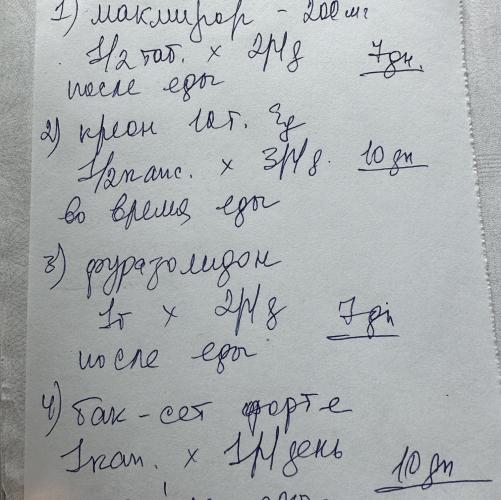 1) макмирор - 200 мг
1/2 таб. х 2р/д 7 дн.
после еды
2) креон 10т. Ед
1/2 капс. х 3р/д. 10 дн
во время еды
3) фуразолидон
1т х 2р/д 7 дн
после еды
4) бак-сет форте
1 кап. х 1р/день 10 дн